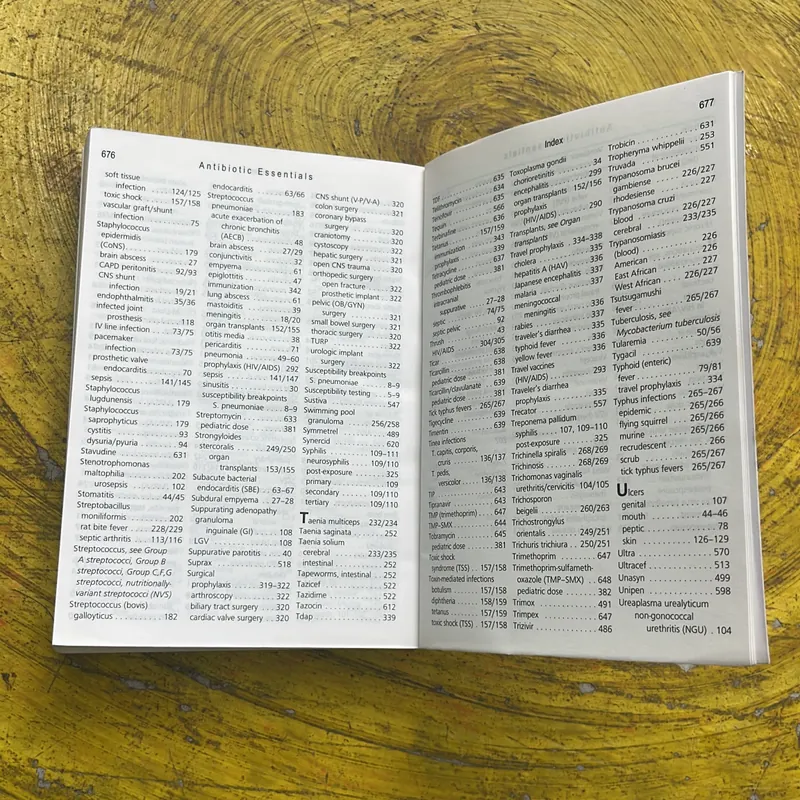 676
Antibiotic Essentials
soft tissue
infection . . . . . . 124/125
toxic shock . . . . . 157/158
vascular graft/shunt
infection . . . . . . . . 75
Staphylococcus
epidermidis
(CoNS) . . . . . . . . . 179
brain abscess . . . . . . . 27
CAPD peritonitis . . 92/93
CNS shunt
infection . . . . . . . 19/21
endophthalmitis . . . 35/36
infected joint
prosthesis . . . . . . . . 118
IV line infection . . . 73/75
pacemaker
infection . . . . . . 73/75
prosthetic valve
endocarditis . . . . . . . 70
sepsis . . . . . . . . 141/145
Staphylococcus
lugdunensis . . . . . . 179
Staphylococcus
saprophyticus . . . . . 179
cystitis . . . . . . . . . . . 93
dysuria/pyuria . . . . . . 94
Stavudine . . . . . . . . . 631
Stenotrophomonas
maltophilia . . . . . . . 202
urosepsis . . . . . . . . 102
Stomatitis . . . . . . . 44/45
Streptobacillus
moniliformis . . . . . . 202
rat bite fever . . . 228/229
septic arthritis . . 113/116
Streptococcus, see Group
A streptococci, Group B
streptococci, Group C,F,G
streptococci, nutritionally-
variant streptococci (NVS)
Streptococcus (bovis)
gallolyticus . . . . . . . . 182
endocarditis . . . . 63/66
Streptococcus
pneumoniae . . . . . . 183
acute exacerbation of
chronic bronchitis
(AECB) . . . . . . . . . 48
brain abscess . . . . 27/29
conjunctivitis . . . . . . . 32
empyema . . . . . . . . . 61
epiglottitis . . . . . . . . . 47
immunization . . . . . . 342
lung abscess . . . . . . . 61
mastoiditis . . . . . . . . . 39
meningitis . . . . . . 18/20
organ transplants 152/155
otitis media . . . . . . . . 38
pericarditis . . . . . . . . . 71
pneumonia . . . . . 49–60
prophylaxis (HIV/AIDS) 292
sepsis . . . . . . . . 141/147
sinusitis . . . . . . . . . . . 30
susceptibility breakpoints
S. pneumoniae . . . . 8–9
Streptomycin . . . . . . . 633
pediatric dose . . . . . . 381
Strongyloides
stercoralis . . . . . 249/250
organ
transplants . . . 153/155
Subacute bacterial
endocarditis (SBE) . . 63–67
Subdural empyema . . 27–28
Suppurating adenopathy
granuloma
inguinale (GI) . . . . 108
LGV . . . . . . . . . . . . 108
Suppurative parotitis . . . 40
Suprax . . . . . . . . . . . 518
Surgical
prophylaxis . . . . 319–322
arthroscopy . . . . . . . 322
biliary tract surgery . . . 320
cardiac valve surgery . . 320
CNS shunt (V-P/V-A) . . 320
colon surgery . . . . . . 321
coronary bypass
surgery . . . . . . . . . 320
craniotomy . . . . . . . . 320
cystoscopy . . . . . . . . 322
hepatic surgery . . . . . 321
hernia surgery . . . . . . 321
open CNS trauma . . . 320
orthopedic surgery
open fracture . . . . . 322
prosthetic implant . . 322
pelvic (OB/GYN)
surgery . . . . . . . . . 321
small bowel surgery . . 321
thoracic surgery . . . . . 320
TURP . . . . . . . . . . . . 322
urologic implant
surgery . . . . . . . . . 322
Susceptibility breakpoints
S. pneumoniae . . . . . 8–9
Susceptibility testing . . . 5–9
Sustiva . . . . . . . . . . . 547
Swimming pool
granuloma . . . . 256/258
Symmetrel . . . . . . . . . 489
Synercid . . . . . . . . . . 620
Syphilis . . . . . . . 109–111
neurosyphilis . . . 109/110
post-exposure . . . . . . 325
primary . . . . . . . . . . 109
secondary . . . . . 109/110
tertiary . . . . . . . 109/110
Taenia multiceps 232/234
Taenia saginata . . . . . . 252
Taenia solium
cerebral . . . . . . 233/235
intestinal . . . . . . . . . 252
Tapeworms, intestinal . . 252
Tazicef . . . . . . . . . . . 522
Tazidime . . . . . . . . . . 522
Tazocin . . . . . . . . . . . 612
Tdap . . . . . . . . . . . . . 339
677
Index
TDF . . . . . . . . . . . . . 635
Telithromycin . . . . . . . 634
Tenofovir . . . . . . . . . . 635
Tequin . . . . . . . . . . . . 566
Terbinafine . . . . . . . . . 636
Tetanus . . . . . . . 157/159
immunization . . . . . . 343
prophylaxis . . . . . . . 339
Tetracycline . . . . . . . . 637
pediatric dose . . . . . . 381
Thrombophlebitis
intracranial
suppurative . . . . 27–28
septic . . . . . . . . . 74/75
septic pelvic . . . . . . . . 92
Thrush . . . . . . . . . . . . 43
HIV/AIDS . . . . . . 304/305
Ticar . . . . . . . . . . . . . 638
Ticarcillin . . . . . . . . . . 638
pediatric dose . . . . . . 381
Ticarcillin/clavulanate . . 639
pediatric dose . . . . . . 381
Tick typhus fevers . . 265/267
Tigecycline . . . . . . . . . 639
Timentin . . . . . . . . . . 639
Tinea infections
T. capitis, corporis,
cruris . . . . . . . 136/137
T. pedis,
versicolor . . . . . 136/138
TIP . . . . . . . . . . . . . . 643
Tipranavir . . . . . . . . . . 643
TMP (trimethoprim) . . . 647
TMP–SMX . . . . . . . . . 644
Tobramycin . . . . . . . . . 645
pediatric dose . . . . . . 381
Toxic shock
syndrome (TSS) . . 157/158
Toxin-mediated infections
botulism . . . . . . 157/158
diphtheria . . . . . 158/159
tetanus . . . . . . . 157/159
toxic shock (TSS) . 157/158
Toxoplasma gondii
chorioretinitis . . . . . . . 34
encephalitis . . . . . . . 299
organ transplants 152/156
prophylaxis
(HIV/AIDS) . . . . . . 290
Transplants, see Organ
transplants
Travel prophylaxis . 334–338
cholera . . . . . . . . . . 335
hepatitis A (HAV) . . . . 336
Japanese encephalitis . 337
malaria . . . . . . . . . . 337
meningococcal
meningitis . . . . . . . 336
rabies . . . . . . . . . . . 337
traveler's diarrhea . . . 335
typhoid fever . . . . . . 336
yellow fever . . . . . . . 336
Travel vaccines
(HIV/AIDS) . . . . . . . 293
Traveler's diarrhea
prophylaxis . . . . . . . 335
Trecator . . . . . . . . . . . 557
Treponema pallidum
syphilis . . . . 107, 109–110
post-exposure . . . . . . 325
Trichinella spiralis . . 268/269
Trichinosis . . . . . . 268/269
Trichomonas vaginalis
urethritis/cervicitis 104/105
Trichosporon
beigelii . . . . . . . 260/263
Trichostrongylus
orientalis . . . . . . 249/251
Trichuris trichiura . . 250/251
Trimethoprim . . . . . . . 647
Trimethoprim-sulfameth-
oxazole (TMP–SMX) . . 648
pediatric dose . . . . . . 382
Trimox . . . . . . . . . . . . 491
Trimpex . . . . . . . . . . . 647
Trizivir . . . . . . . . . . . . 486
Trobicin . . . . . . . . . . . 631
Tropheryma whippelii . . 253
Truvada . . . . . . . . . . . 551
Trypanosoma brucei
gambiense . . . . 226/227
rhodesiense . . . . . . . 227
Trypanosoma cruzi
blood . . . . . . . . 226/227
cerebral . . . . . . 233/235
Trypanosomiasis
(blood) . . . . . . . . . . 226
American . . . . . . . . . 226
East African . . . . . . . 227
West African . . . 226/227
Tsutsugamushi
fever . . . . . . . . 265/267
Tuberculosis, see
Mycobacterium tuberculosis
Tularemia . . . . . . . 50/56
Tygacil . . . . . . . . . . . 639
Typhoid (enteric)
fever . . . . . . . . . 79/81
travel prophylaxis . . . . 334
Typhus infections . . 265–267
epidemic . . . . . . 265/266
flying squirrel . . . 265/266
murine . . . . . . . 265/266
recrudescent . . . . . . . 266
scrub . . . . . . . . 265/267
tick typhus fevers . 265/267
Ulcers
genital . . . . . . . . . . . 107
mouth . . . . . . . . 44–46
peptic . . . . . . . . . . . . 78
skin . . . . . . . . . 126–129
Ultra . . . . . . . . . . . . . 570
Ultracef . . . . . . . . . . . 513
Unasyn . . . . . . . . . . . 499
Unipen . . . . . . . . . . . 598
Ureaplasma urealyticum
non-gonococcal
urethritis (NGU) . 104